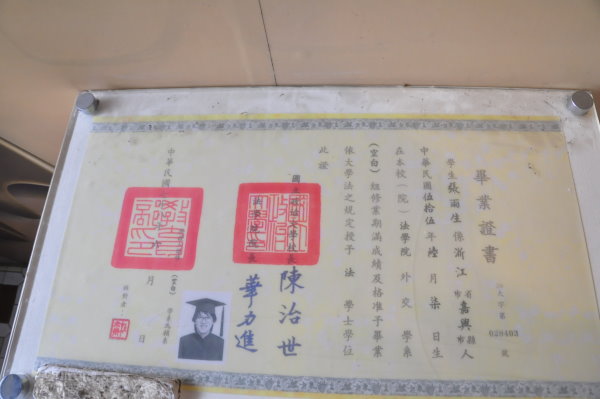 畢業證書
大字第 028403 號
學生張雨生係浙江省市嘉興縣市人
中華民國伍拾伍年陸月柒日生
在本校(院)法學院外交學系
(空白)組修業期滿成績及格准予畢業
依大學法之規定授予法學士學位
此證
陳治世
華力進
中華民國
月
日
(空白)